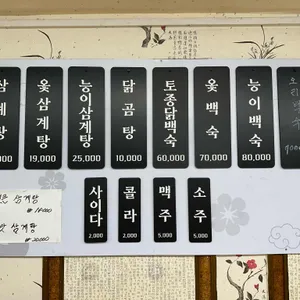 삼계탕
000
옻삼계탕
19,000
능이삼계탕
25,000
닭곰탕
10,000
토종닭백숙
60,000
옻백숙
70,000
능이백숙
80,000
사이다
2,000
콜라
2,000
맥주
5,000
소주
5,000
삼계탕
삼계탕
₩20,000